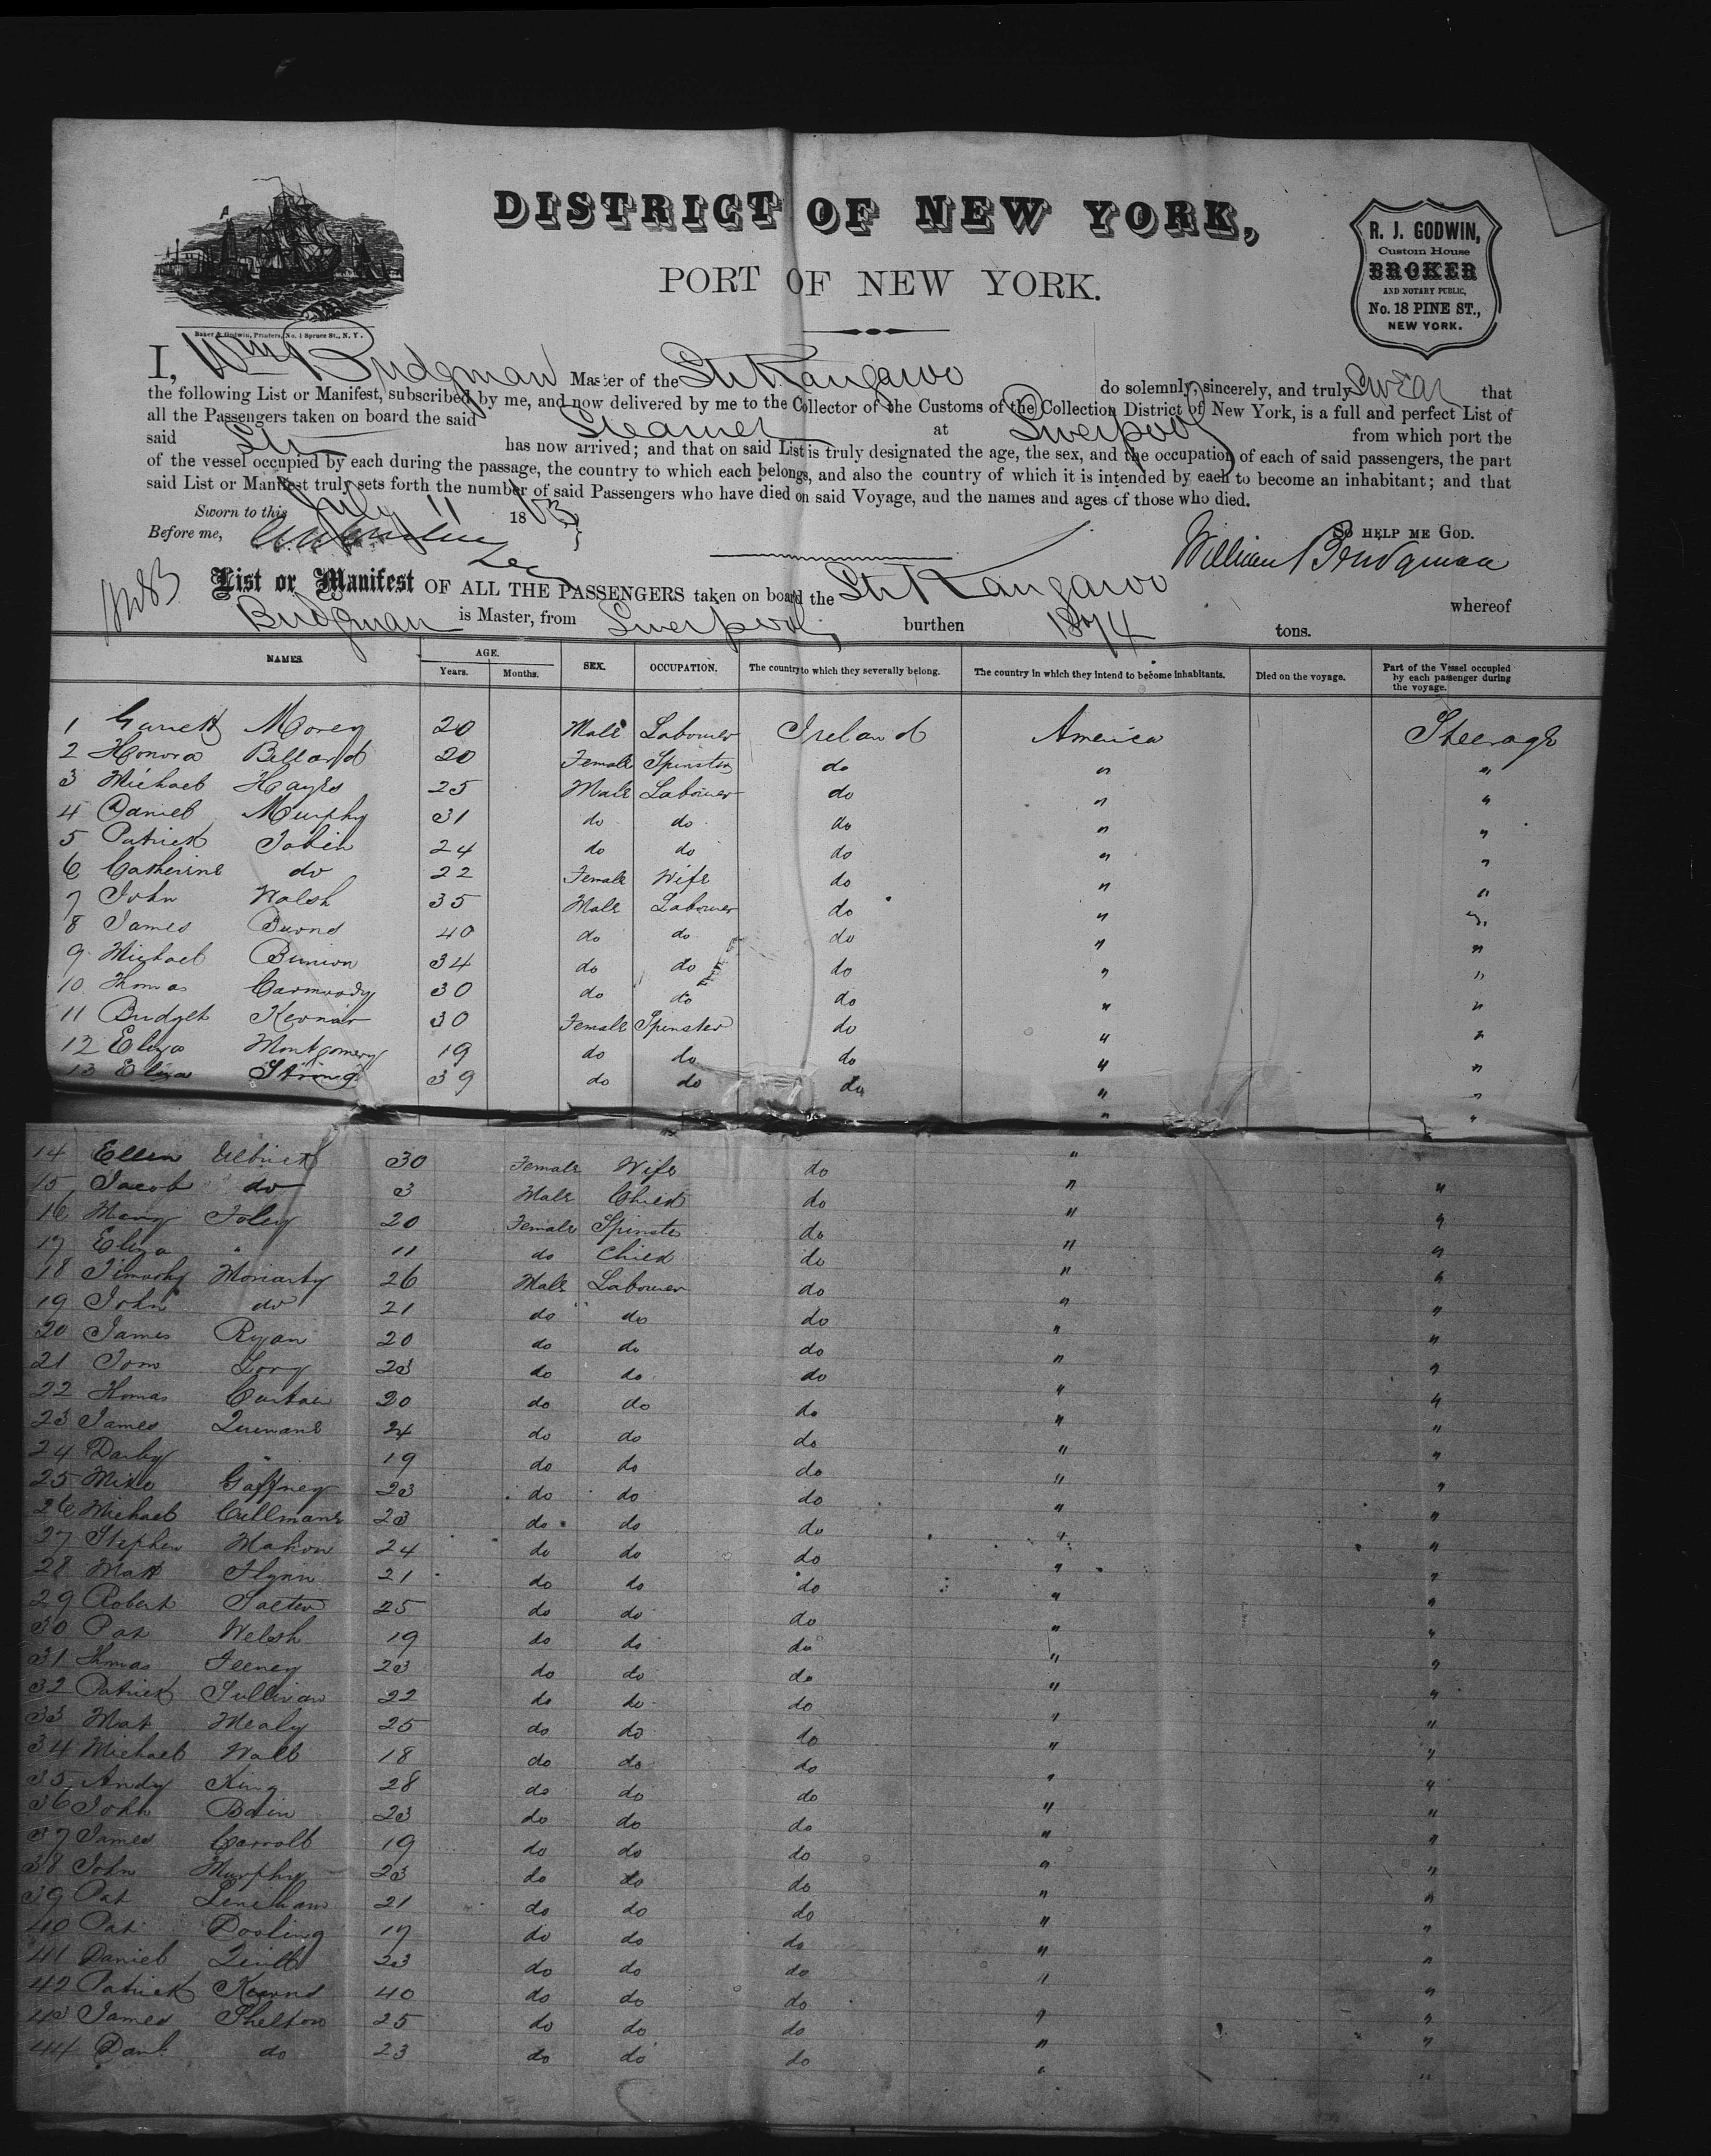 DISTRICT OF NEW YORK,
PORT OF NEW YORK.
R. J. GODWIN,
Custom House
BROKER
AND NOTARY PUBLIC,
No. 18 PINE ST.,
NEW YORK.
Baker & Godwin, Printers, No. 1 Spruce St., N. Y.
I, Wm Bridgman Master of the Str Kangaroo do solemnly, sincerely, and truly Swear that
the following List or Manifest, subscribed by me, and now delivered by me to the Collector of the Customs of the Collection District of New York, is a full and perfect List of
all the Passengers taken on board the said Steamer at Liverpool from which port the
said Str has now arrived; and that on said List is truly designated the age, the sex, and the occupation of each of said passengers, the part
of the vessel occupied by each during the passage, the country to which each belongs, and also the country of which it is intended by each to become an inhabitant; and that
said List or Manifest truly sets forth the number of said Passengers who have died on said Voyage, and the names and ages of those who died.
Sworn to this July 11 1863
Before me,
SO HELP ME GOD.
William Bridgman
List or Manifest OF ALL THE PASSENGERS taken on board the Str Kangaroo whereof
Bridgman is Master, from Liverpool, burthen 1874 tons.
NAMES AGE. Years. Months. SEX. OCCUPATION. The country to which they severally belong. The country in which they intend to become inhabitants. Died on the voyage. Part of the Vessel occupied by each passenger during the voyage.
1 Garrett Morey 20 Male Labourer Ireland America Steerage
2 Honora Belland 20 Female Spinster do " "
3 Michael Hayes 25 Male Labourer do " "
4 Daniel Murphy 31 do do do " "
5 Patrick Tobin 24 do do do " "
6 Catherine do 22 Female Wife do " "
7 John Walsh 35 Male Labourer do " "
8 James Burns 40 do do do " "
9 Michael Binion 34 do do do " "
10 Thomas Carmoody 30 do do do " "
11 Bridget Kernan 30 Female Spinster do " "
12 Eliza Montgomery 19 do do do " "
13 Eliza Strong 39 do do do " "
14 Ellen 30 Female Wife do " "
15 Jacob do 3 Male Child do " "
16 Mary Foley 20 Female Spinster do " "
17 Eliza " 11 do Child do " "
18 Timothy Moriarty 26 Male Labourer do " "
19 John do 21 do do do " "
20 James Ryan 20 do do do " "
21 Tom 23 do do do " "
22 Thomas Curtain 20 do do do " "
23 James Quinane 24 do do do " "
24 Darby " 19 do do do " "
25 Mike Gaffney 23 do do do " "
26 Michael Cullinane 23 do do do " "
27 Stephen Mahon 24 do do do " "
28 Matt Flynn 21 do do do " "
29 Robert Salter 25 do do do " "
30 Pat Welsh 19 do do do " "
31 Thomas Feeney 23 do do do " "
32 Patrick Sullivan 22 do do do " "
33 Mat Mealy 25 do do do " "
34 Michael Wall 18 do do do " "
35 Andy King 28 do do do " "
36 John Bain 23 do do do " "
37 James Carroll 19 do do do " "
38 John Murphy 23 do do do " "
39 Pat Lenehan 21 do do do " "
40 Pat Dooling 17 do do do " "
41 Daniel Quill 23 do do do " "
42 Patrick Kearns 40 do do do " "
43 James Shelton 25 do do do " "
44 Danl do 23 do do do " "